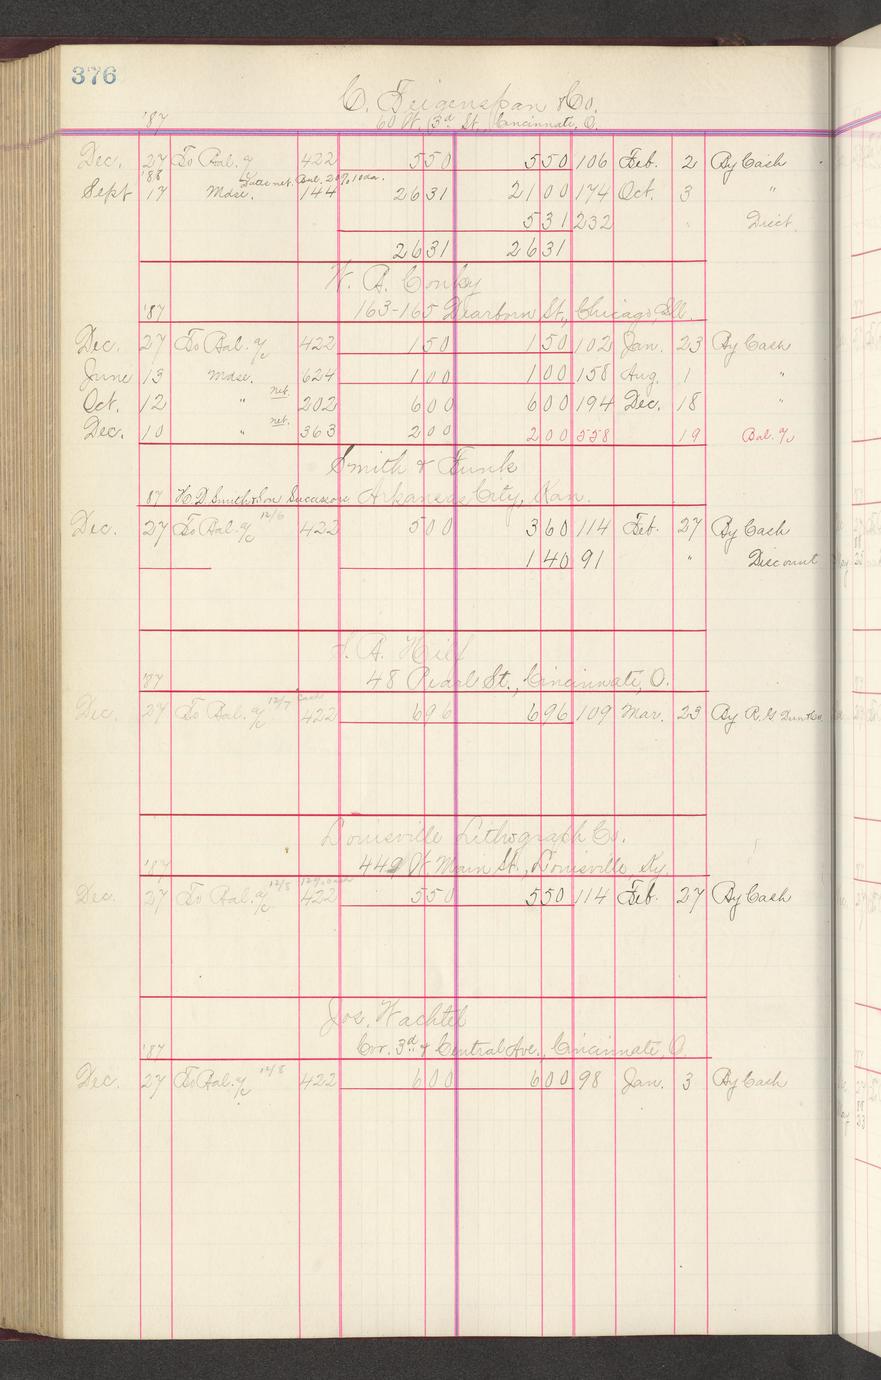 376
C. Feigenspan & Co.
'87 60 W. 3d St., Cincinnate, O.
Dec. 27 To Bal. % 422 550 550 106 Feb. 2 By Cash
'88 net. Bal. 20% 10 da.
Sept 17 Mdse. 144 2631 2100 174 Oct. 3 "
531 232 " Disct.
2631 2631
W. B. Conkey
'87 163-165 Dearborn St., Chicago, Ill.
Dec. 27 To Bal. % 422 150 150 102 Jan. 23 By Cash
June 13 Mdse. 624 100 100 158 Aug. 1 "
Oct. 12 " net. 202 600 600 194 Dec. 18 "
Dec. 10 " net. 363 200 200 558 19 Bal. %
Smith & Funk
'87 H. D. Smith & Son Successors Arkansas City, Kan.
Dec. 27 To Bal. % 12/6 422 500 360 114 Feb. 27 By Cash
140 91 " Discount
S. A. Hilt
'87 48 St., Cincinnate, O.
Dec. 27 To Bal. % 12/7 Cash 422 696 696 109 Mar. 23 By R. G Dun & Co.
Louisville Lithograph Co.
'87 449 W Main St., Louisville, Ky.
Dec. 27 To Bal. % 12/8 422 550 550 114 Feb. 27 By Cash
Jos. Wachtel
'87 Cor. 3d & Central Ave., Cincinnate, O.
Dec. 27 To Bal. % 12/8 422 600 600 98 Jan. 3 By Cash